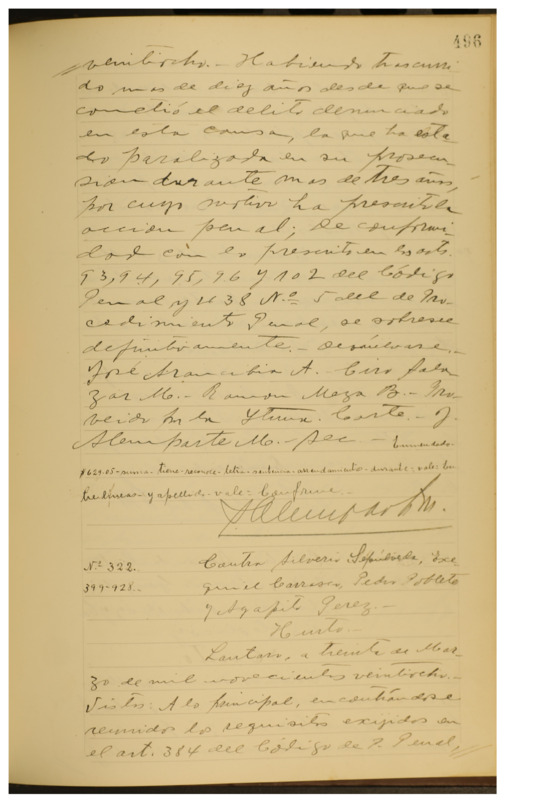 496
veintiocho.- Habiendo trascurri
do mas de diez años desde que se
cometió el delito denunciado
en esta causa, la que ha esta
do paralizada en su prosecu-
sion durante mas de tres años,
por cuyo motivo ha prescrito la
accion penal; de conformi-
dad con lo prescrito en los arts.
93, 94, 95, 96 y 102 del Código
Penal y 438 N.º 5 del de Pro-
cedimiento Penal, se sobresee
definitivamente.- Devuélvase.-
José Arancibia A.- Ciro Sala
zar M.- Ramon Meza B.- Pro-
veido por la Iltma. Corte.- J.
Alemparte M.- Sec.- Enmendado
tiene- letra- sentencia- arrendamiento- durante- vale- En
tre líneas- y apellido- vale- Conforme.-
Nº 322.
399-928.-
Contra Silverio Sepúlveda, Exe-
quiel Carrasco, Pedro Poblete
y Agapito Perez.-
Hurto.-
Lautaro, a treinta de Mar-
zo de mil novecientos veintiocho.-
Vistos: A lo principal, encontrándose
reunidos los requisitos exigidos en
el art. 384 del Código de P. Penal,